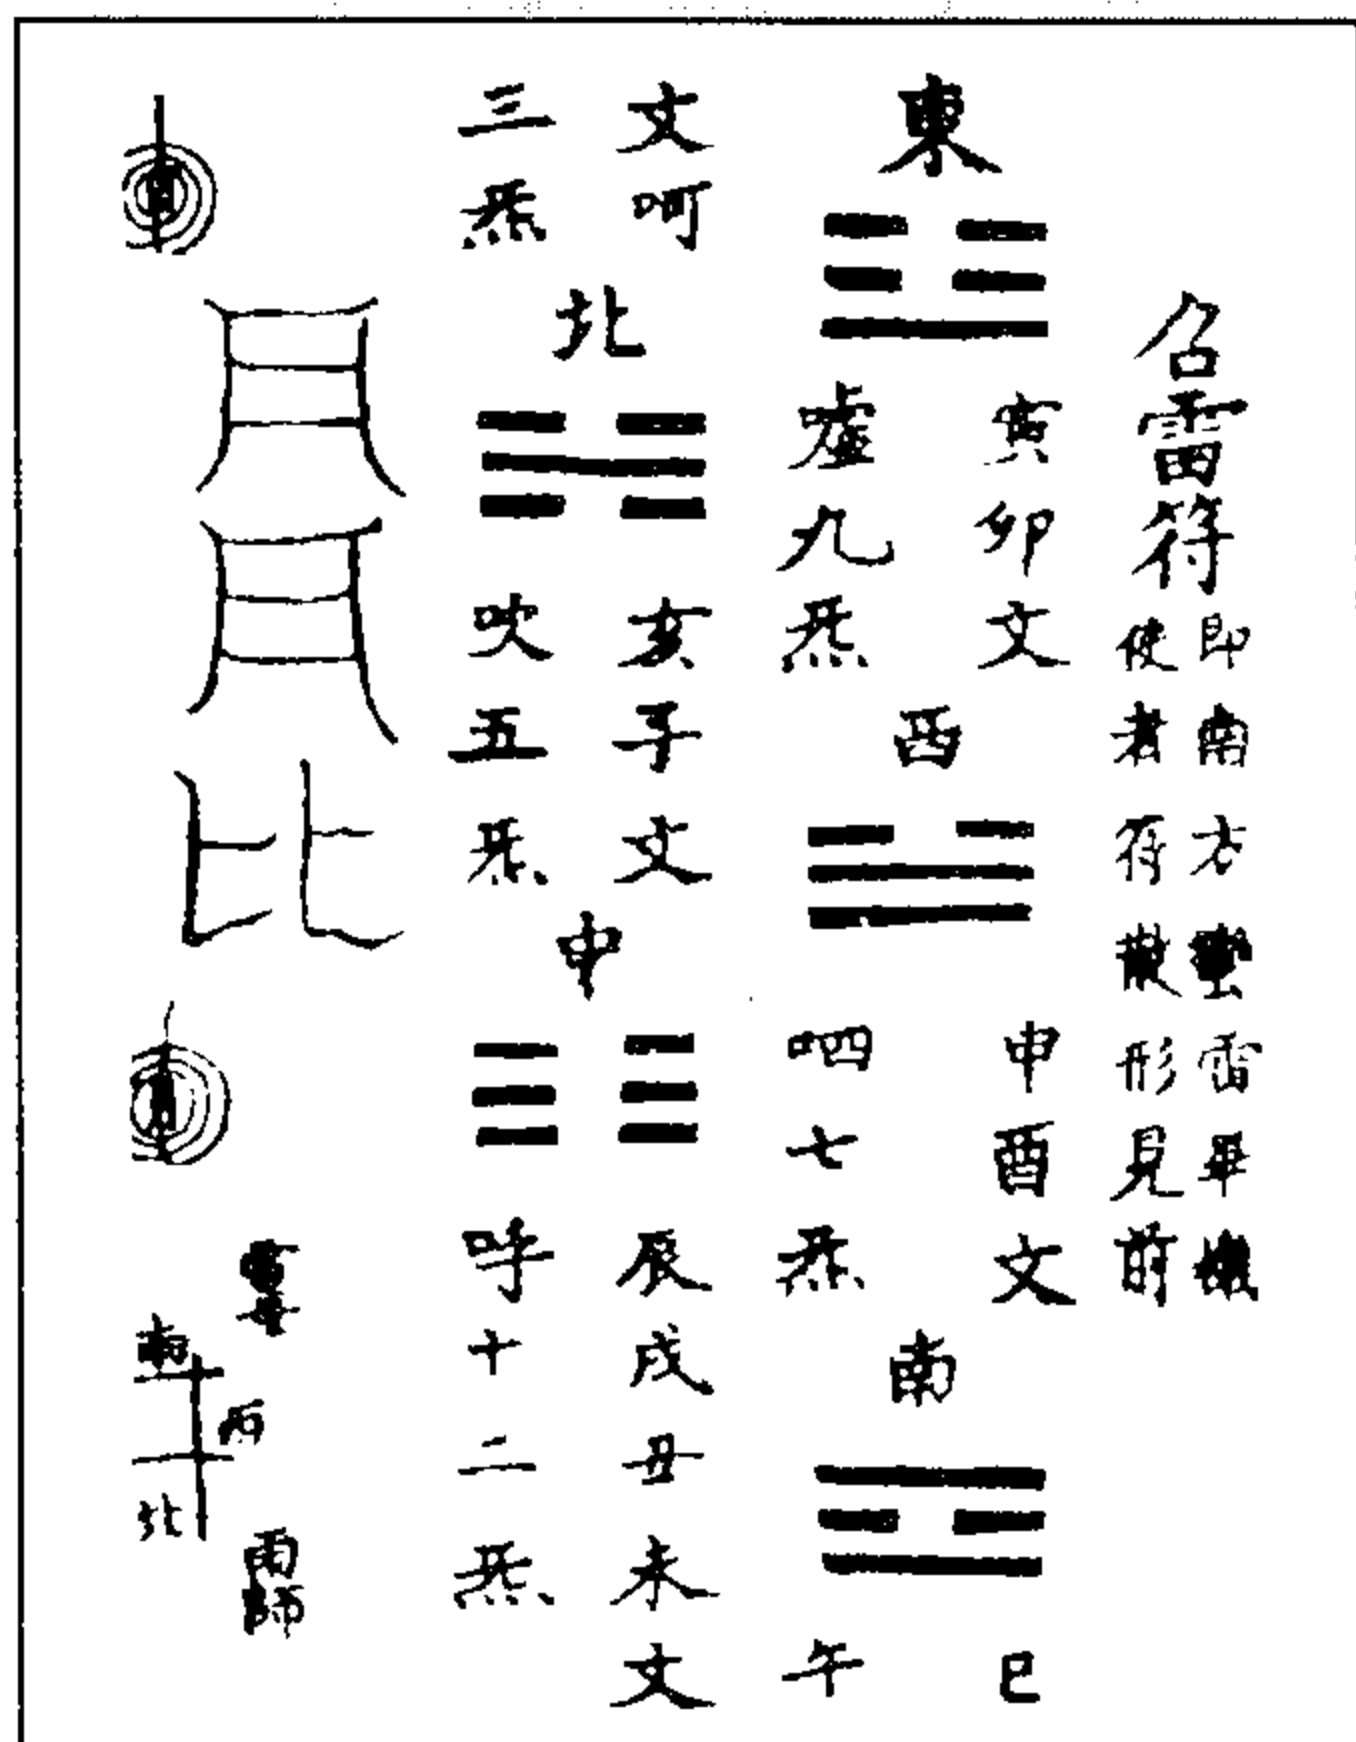 召雷符
即南方蠻雷畢機
使者符散形見前
東
寅卯文
噓九炁
西
申酉文
呬七炁
南
巳午
文呵
三炁
北
亥子文
吹五炁
中
辰戌丑未文
呼十二炁
電母
雨師
南
西
北